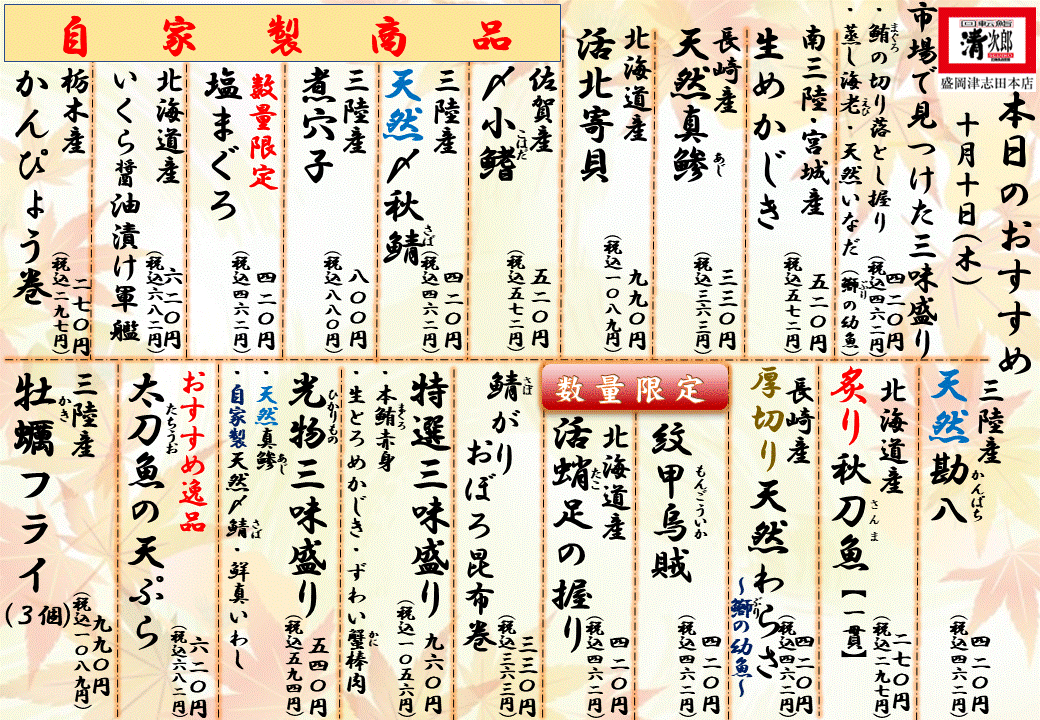 回転鮨
清次郎
SEIJIRO
盛岡津志田本店
本日のおすすめ
十月十日(木)
市場で見つけた三味盛り
・鮪の切り落とし握り
まぐろ
・蒸し海老・天然いなだ(鰤の幼魚)
えび
ぶり
四二〇円
(税込四六二円)
南三陸・宮城産
生めかじき
五二〇円
(税込五七二円)
長崎産
天然真鯵
あじ
三三〇円
(税込三六三円)
北海道産
活北寄貝
九九〇円
(税込一〇八九円)
自家製商品
佐賀産
〆小鰭
こはだ
五二〇円
(税込五七二円)
三陸産
天然〆秋鯖
さば
四二〇円
(税込四六二円)
三陸産
煮穴子
八〇〇円
(税込八八〇円)
数量限定
塩まぐろ
四二〇円
(税込四六二円)
北海道産
いくら醤油漬け軍艦
六二〇円
(税込六八二円)
栃木産
かんぴょう巻
二七〇円
(税込二九七円)
三陸産
天然勘八
かんぱち
四二〇円
(税込四六二円)
北海道産
炙り秋刀魚【一貫】
さんま
二七〇円
(税込二九七円)
長崎産
厚切り天然わらさ
～鰤の幼魚～
ぶり
四二〇円
(税込四六二円)
数量限定
紋甲烏賊
もんごういか
四二〇円
(税込四六二円)
北海道産
活蛸足の握り
たこ
四二〇円
(税込四六二円)
鯖がり
さば
おぼろ昆布巻
三三〇円
(税込三六三円)
特選三味盛り
・本鮪赤身
まぐろ
・生とろめかじき・ずわい蟹棒肉
かに
九六〇円
(税込一〇五六円)
光物三味盛り
ひかりもの
・天然真鯵
あじ
・自家製天然〆鯖・鮮真いわし
さば
五四〇円
(税込五九四円)
おすすめ逸品
太刀魚の天ぷら
たちうお
六二〇円
(税込六八二円)
三陸産
牡蠣フライ(3個)
かき
九九〇円
(税込一〇八九円)